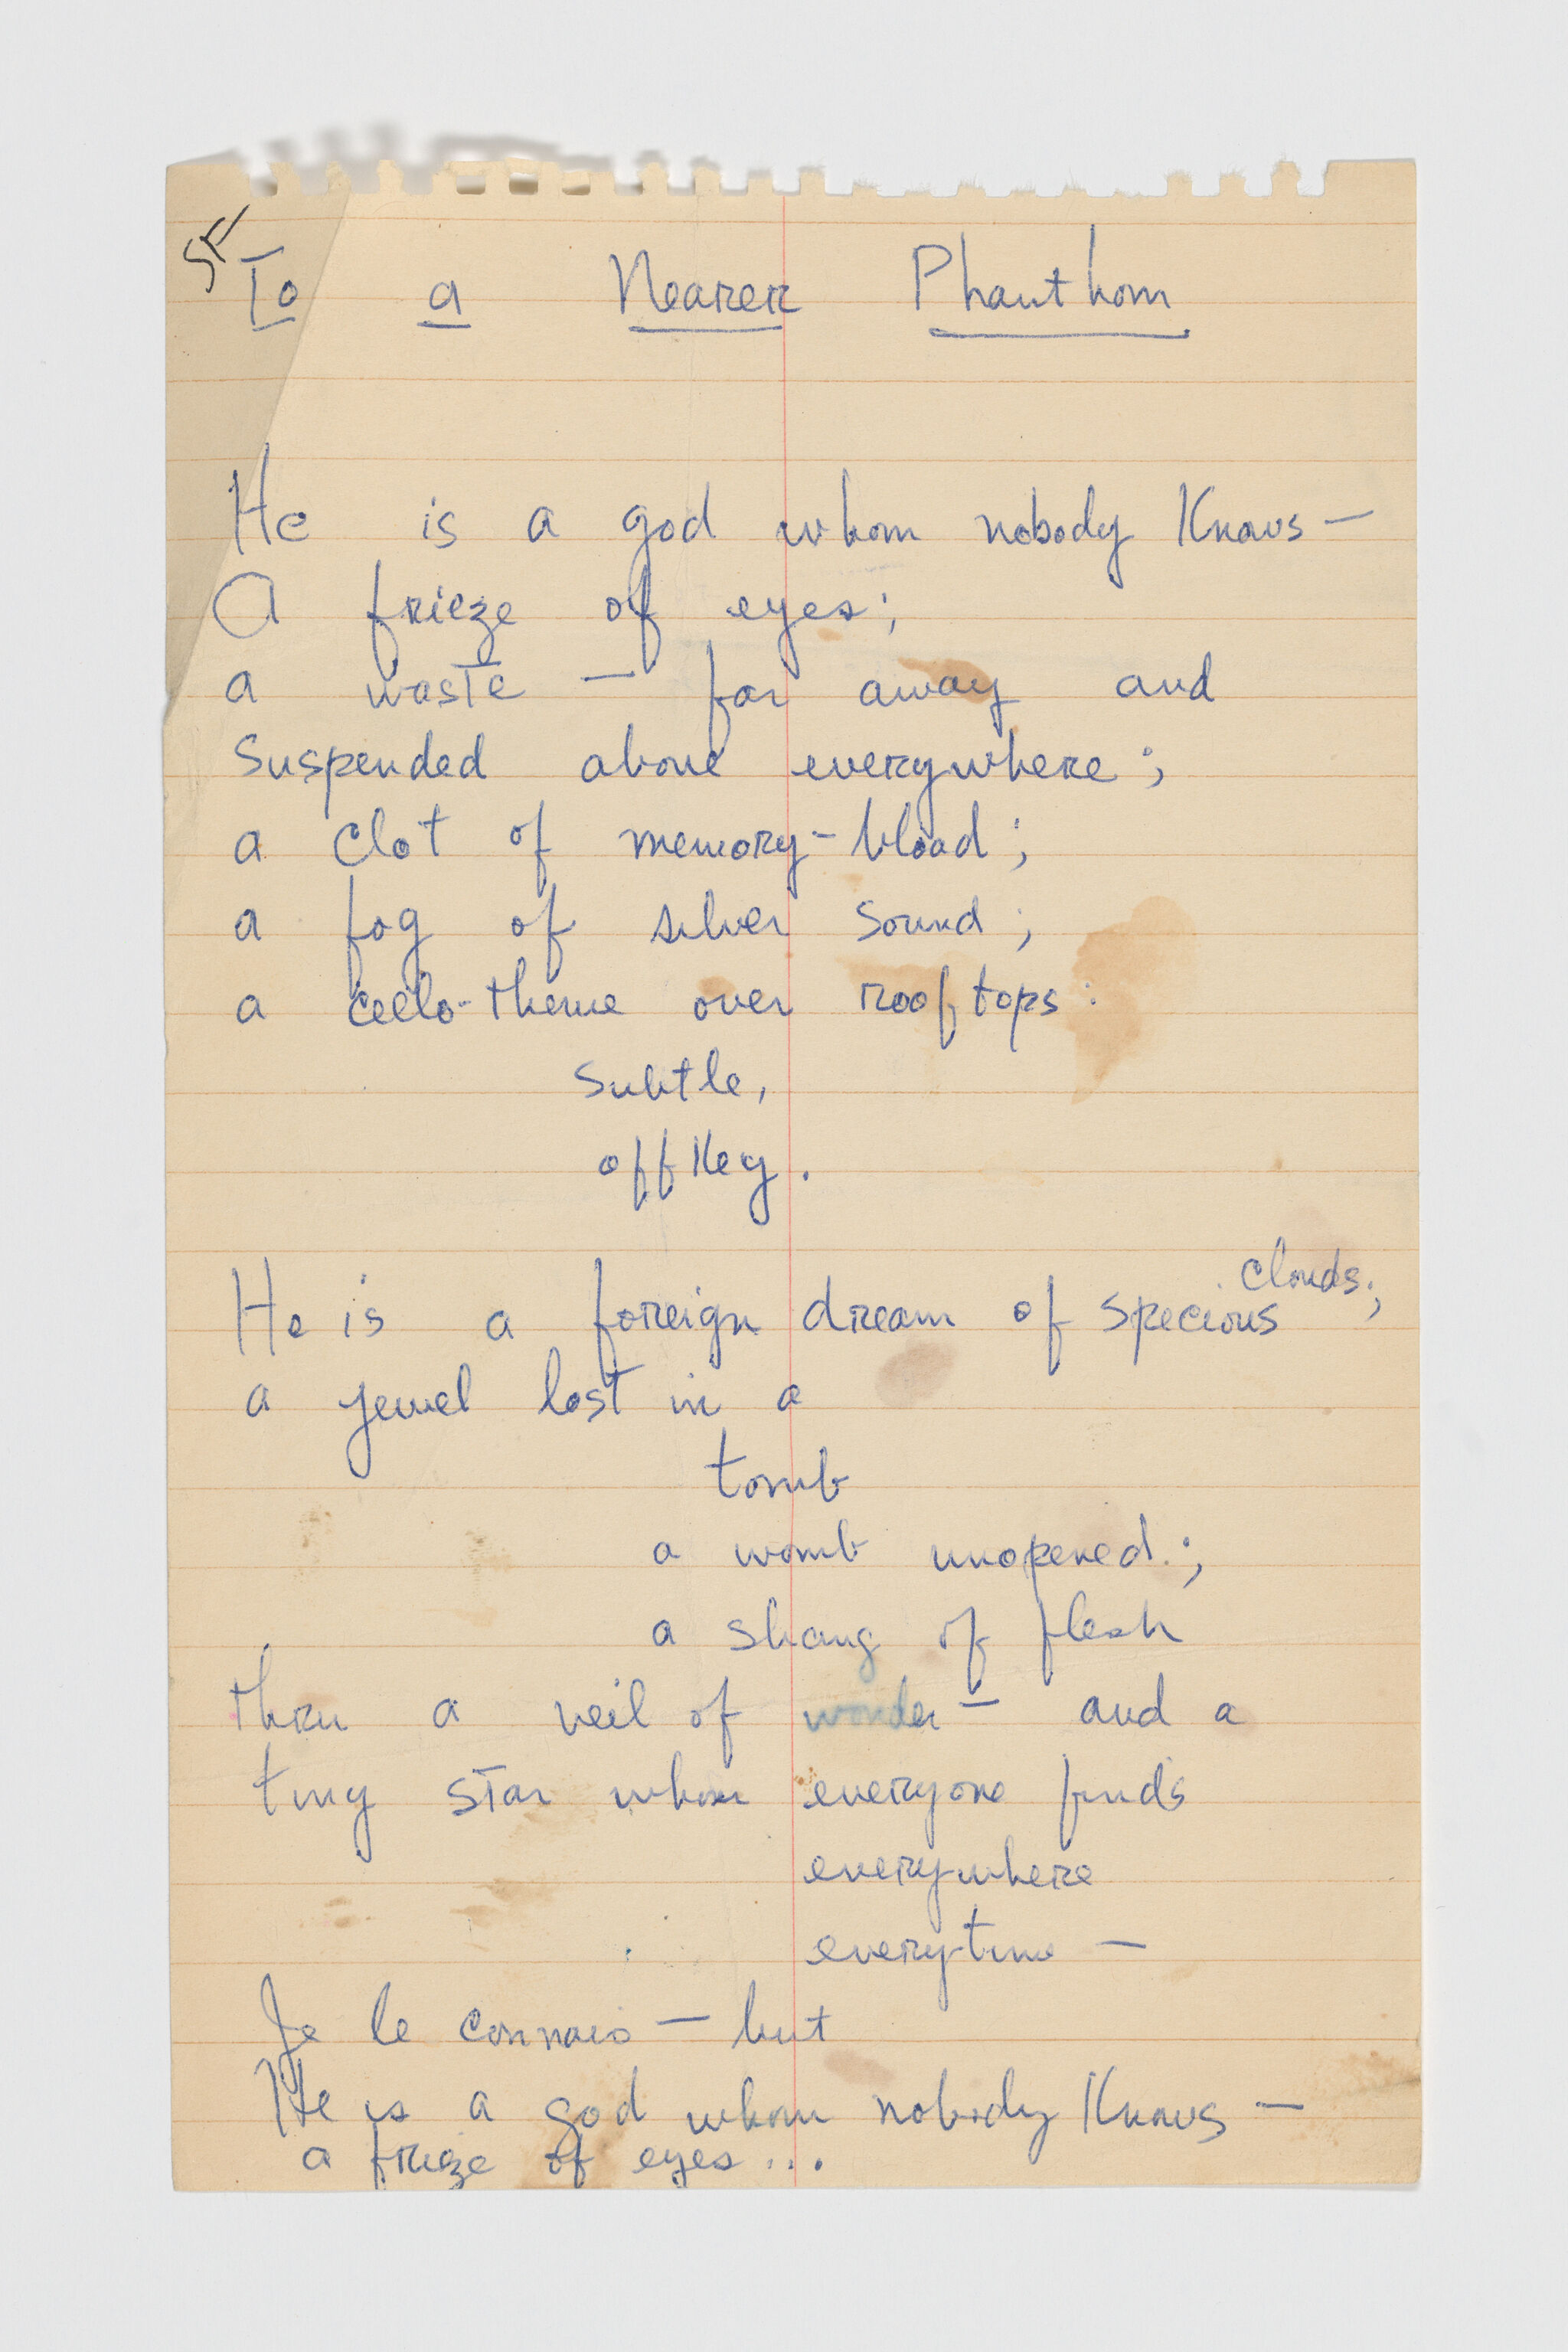 To a Nearer Phanthom
He is a god whom nobody Knows —
A frieze of eyes;
a waste — far away and
Suspended above everywhere;
a clot of memory-blood;
a fog of silver sound;
a cello-theme over rooftops:
subtle,
offkey.
He is a foreign dream of specious clouds;
a jewel lost in a
tomb
a womb unopened;
a of flesh
thru a veil of wonder — and a
tiny star whom everyone finds
everywhere
everytime —
Je le connais — but
He is a god whom nobody Knows —
a frieze of eyes...